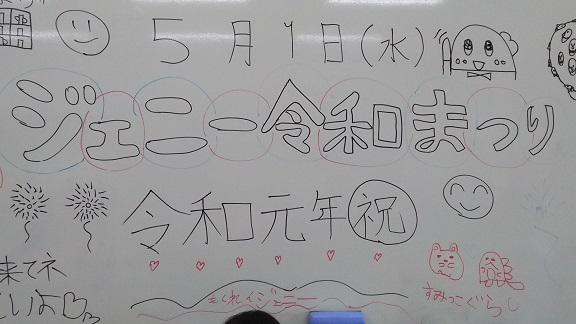 5月1日(水)
ジェニー令和まつり
令和元年祝
来てネ
えくれ♡ジェニー
すみっこぐらし